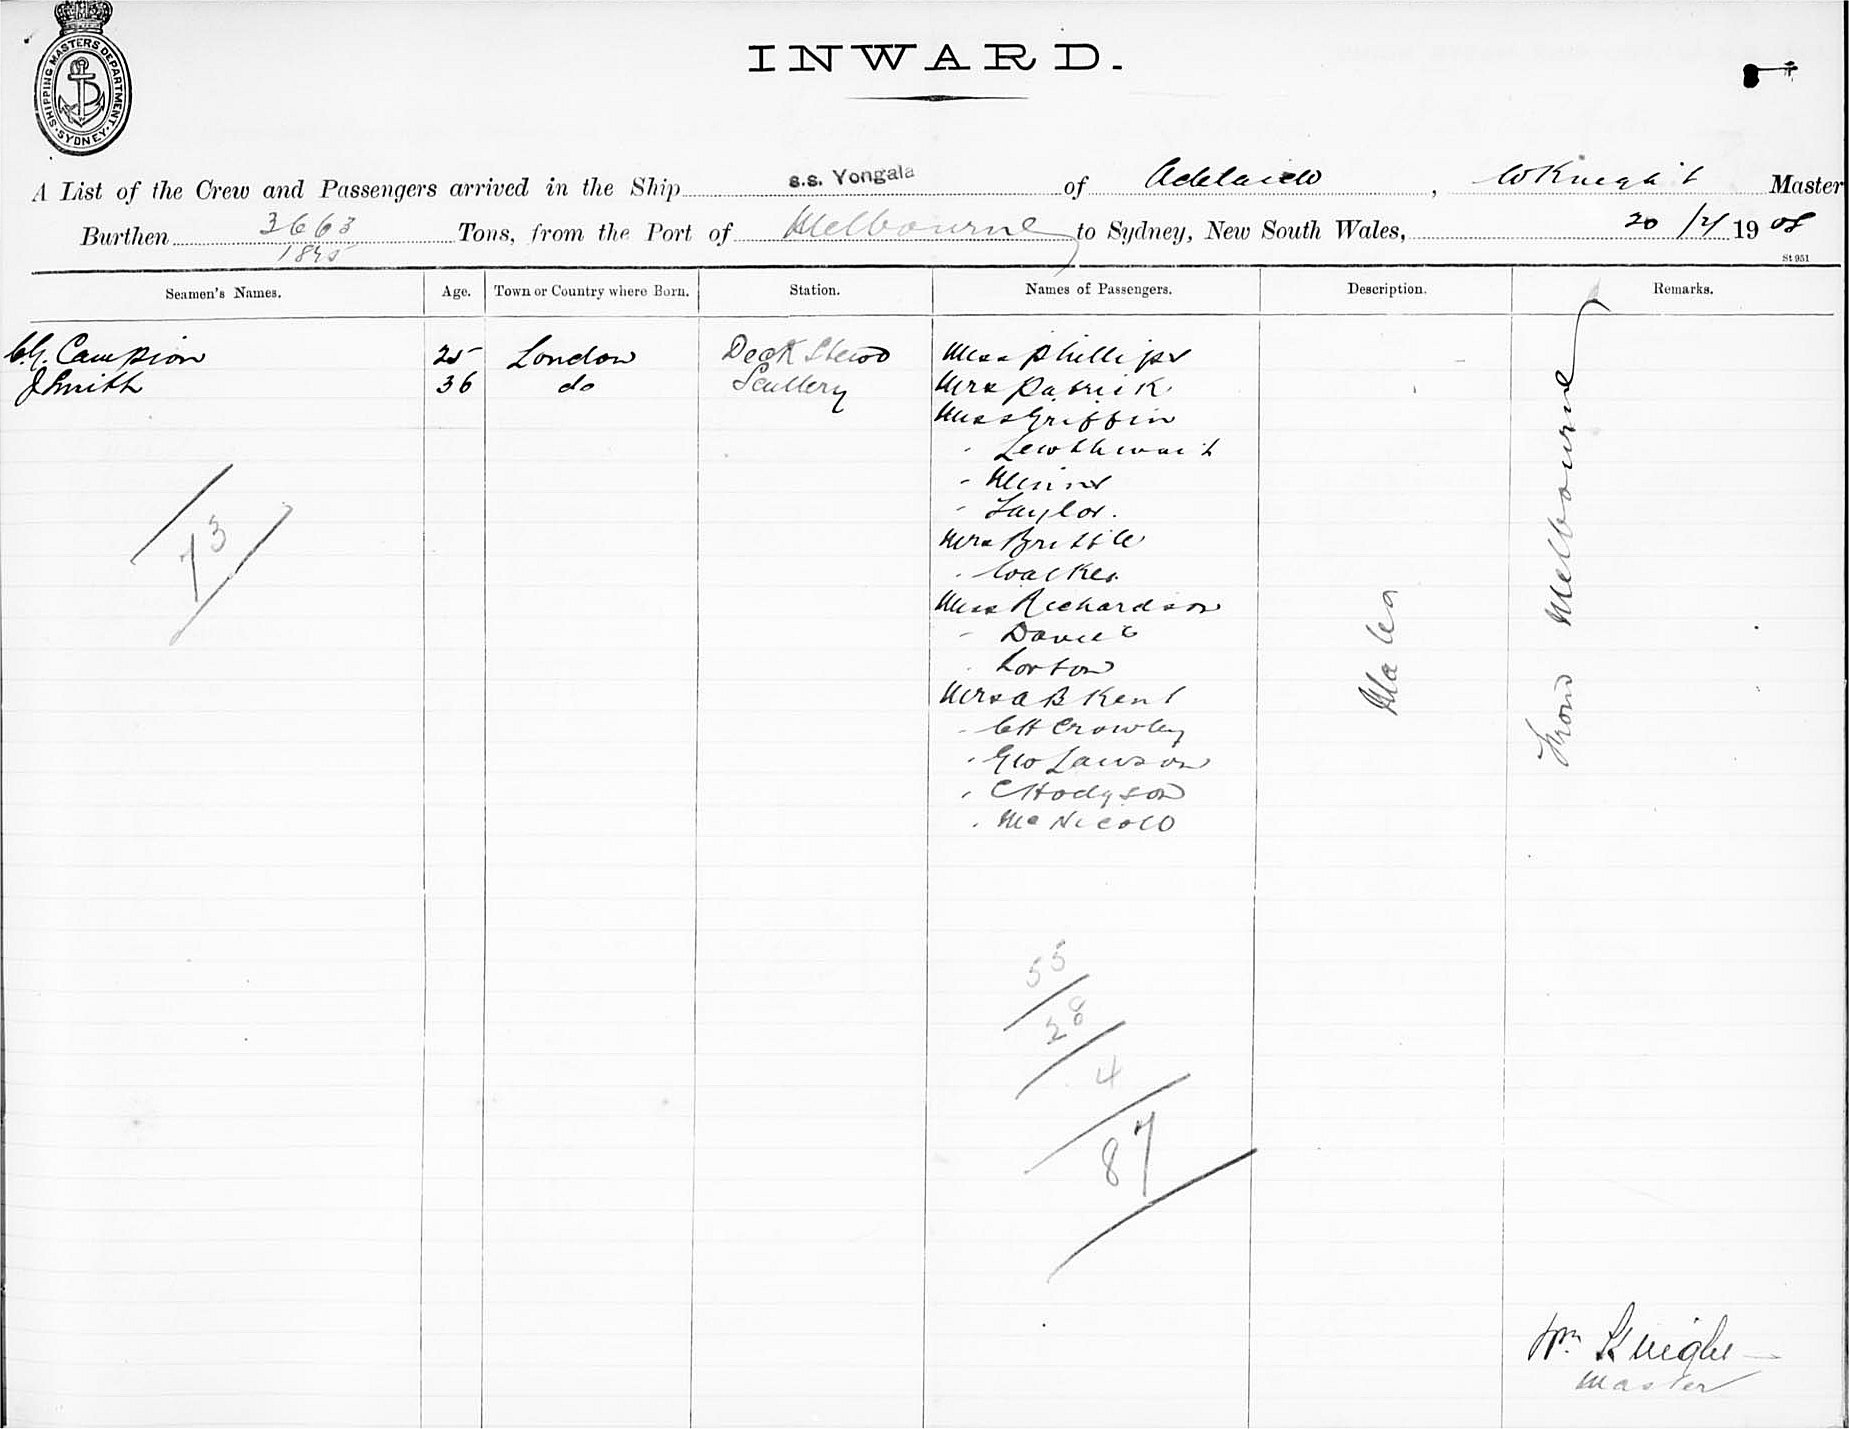 SHIPPING MASTERS DEPARTMENT
SYDNEY
INWARD.
A List of the Crew and Passengers arrived in the Ship s.s. Yongala of Adelaide, W Knight Master
Burthen 3663 Tons, from the Port of Melbourne to Sydney, New South Wales, 20/4 1908
1825
St 951
Seamen's Names. Age. Town or Country where Born. Station. Names of Passengers. Description. Remarks.
C.G. Campion 25 London Deck Stewd Miss Phillips
J Smith 36 do Scullery Mrs Patrick
Miss Griffin
" Lewthwait
" Minns
" Taylor.
Mrs Brittle
" Walker
Miss Richardson
" Davies
" Lorton
Mrs A B Kent
" C H Crowley
" Geo Lawson
" C Hodgson
" McNicoll
From Melbourne
73
55
28
4
87
Wm Knight
Master